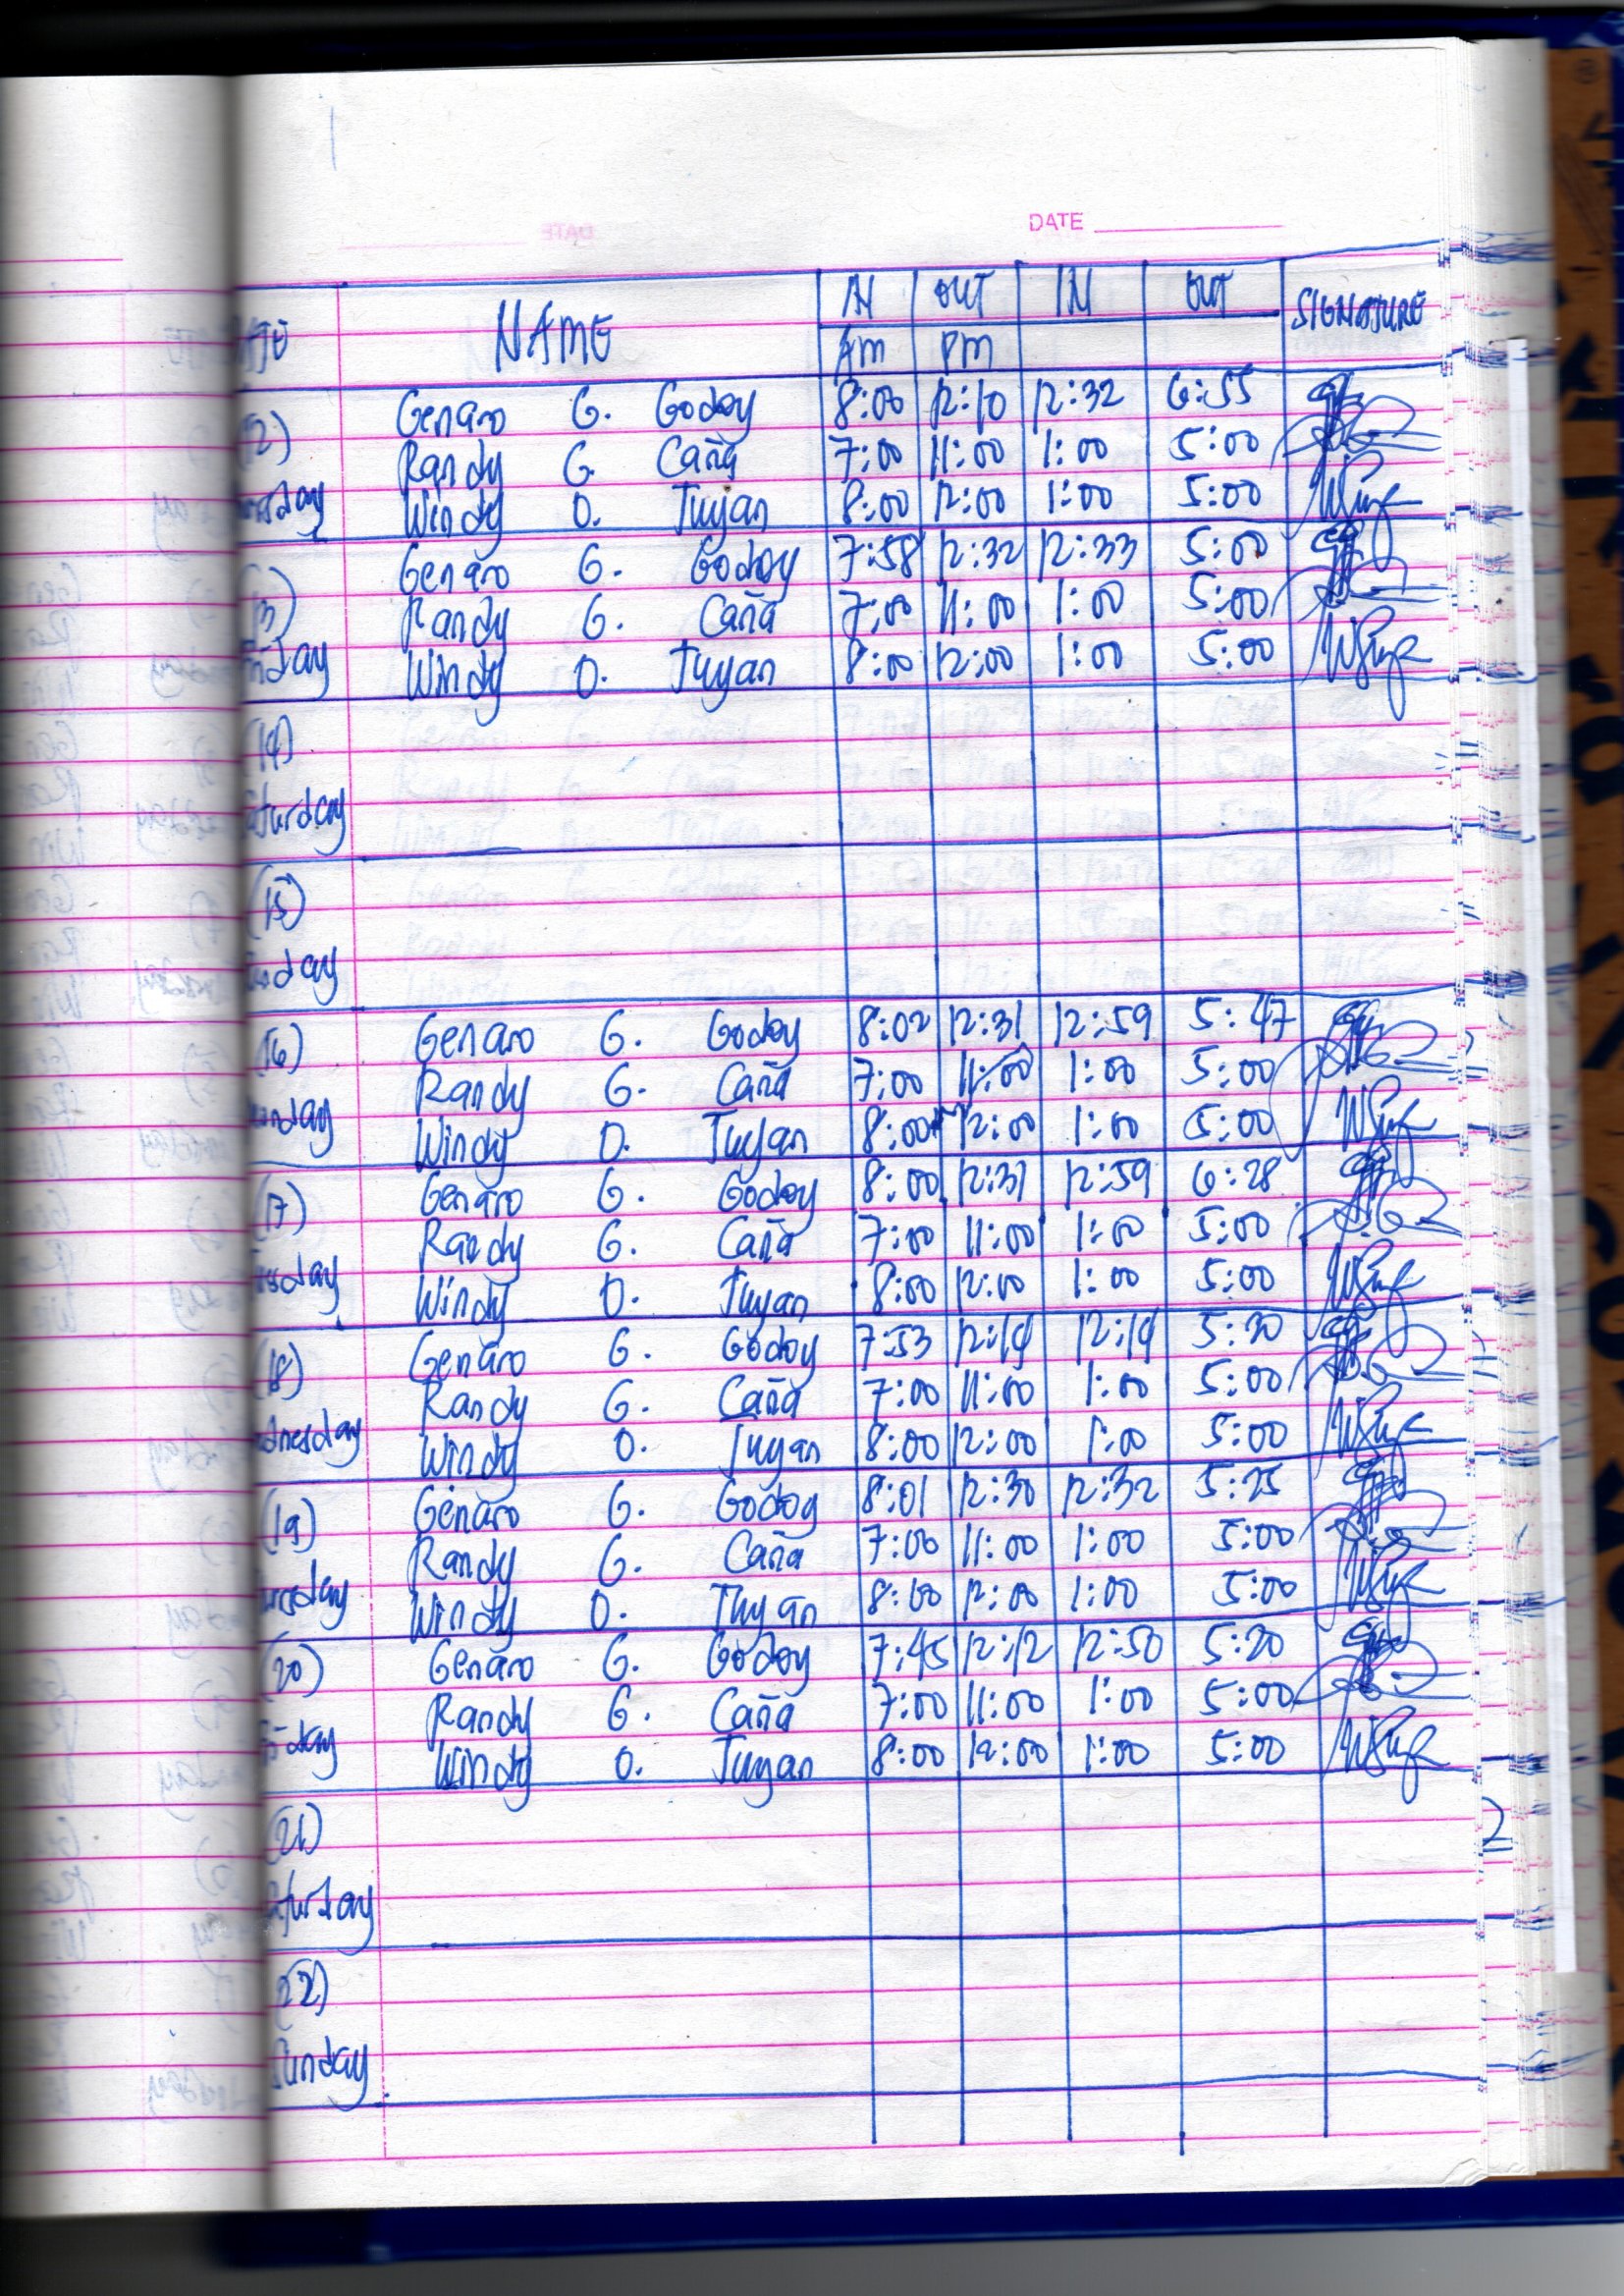 DATE
ATE NAME IN OUT IN OUT SIGNATURE
Am Pm
Genaro G. Godoy 8:00 12:10 12:32 6:55
12) Randy G. Caña 7:00 11:00 1:00 5:00
ursday Windy O. Tuyan 8:00 12:00 1:00 5:00
Genaro G. Godoy 7:58 12:32 12:33 5:00
13) Randy G. Caña 7:00 11:00 1:00 5:00
riday Windy O. Tuyan 8:00 12:00 1:00 5:00
(14)
aturday
(15)
unday
(16) Genaro G. Godoy 8:02 12:31 12:59 5:47
Randy G. Caña 7:00 11:00 1:00 5:00
onday Windy O. Tuyan 8:00 12:00 1:00 5:00
(17) Genaro G. Godoy 8:00 12:31 12:59 6:28
Randy G. Caña 7:00 11:00 1:00 5:00
esday Windy O. Tuyan 8:00 12:00 1:00 5:00
(18) Genaro G. Godoy 7:53 12:14 12:14 5:30
Randy G. Caña 7:00 11:00 1:00 5:00
dnesday Windy O. Tuyan 8:00 12:00 1:00 5:00
(19) Genaro G. Godoy 8:01 12:30 12:32 5:25
Randy G. Caña 7:00 11:00 1:00 5:00
ursday Windy O. Tuyan 8:00 12:00 1:00 5:00
(20) Genaro G. Godoy 7:45 12:12 12:50 5:20
Randy G. Caña 7:00 11:00 1:00 5:00
riday Windy O. Tuyan 8:00 12:00 1:00 5:00
(21)
aturday
(22)
Sunday